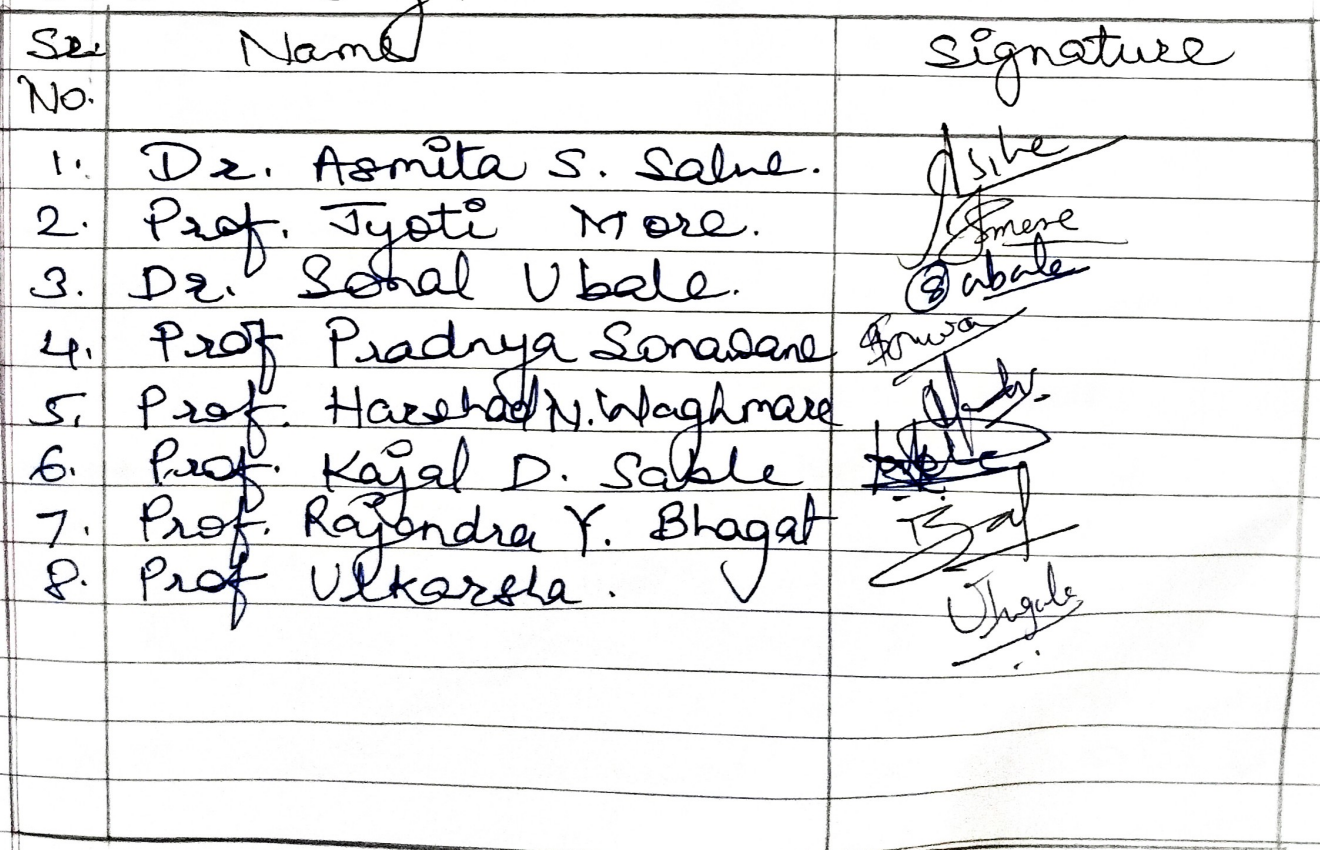 Sr. Name Signature
No.
1. Dr. Asmita S. Salve.
2. Prof. Jyoti More. more
3. Dr. Sonal Ubale. ubale
4. Prof Pradnya Sonawane
5. Prof. Harshad N. Waghmare
6. Prof. Kajal D. Sable
7. Prof. Rajendra Y. Bhagat
8. Prof Utkarsha.